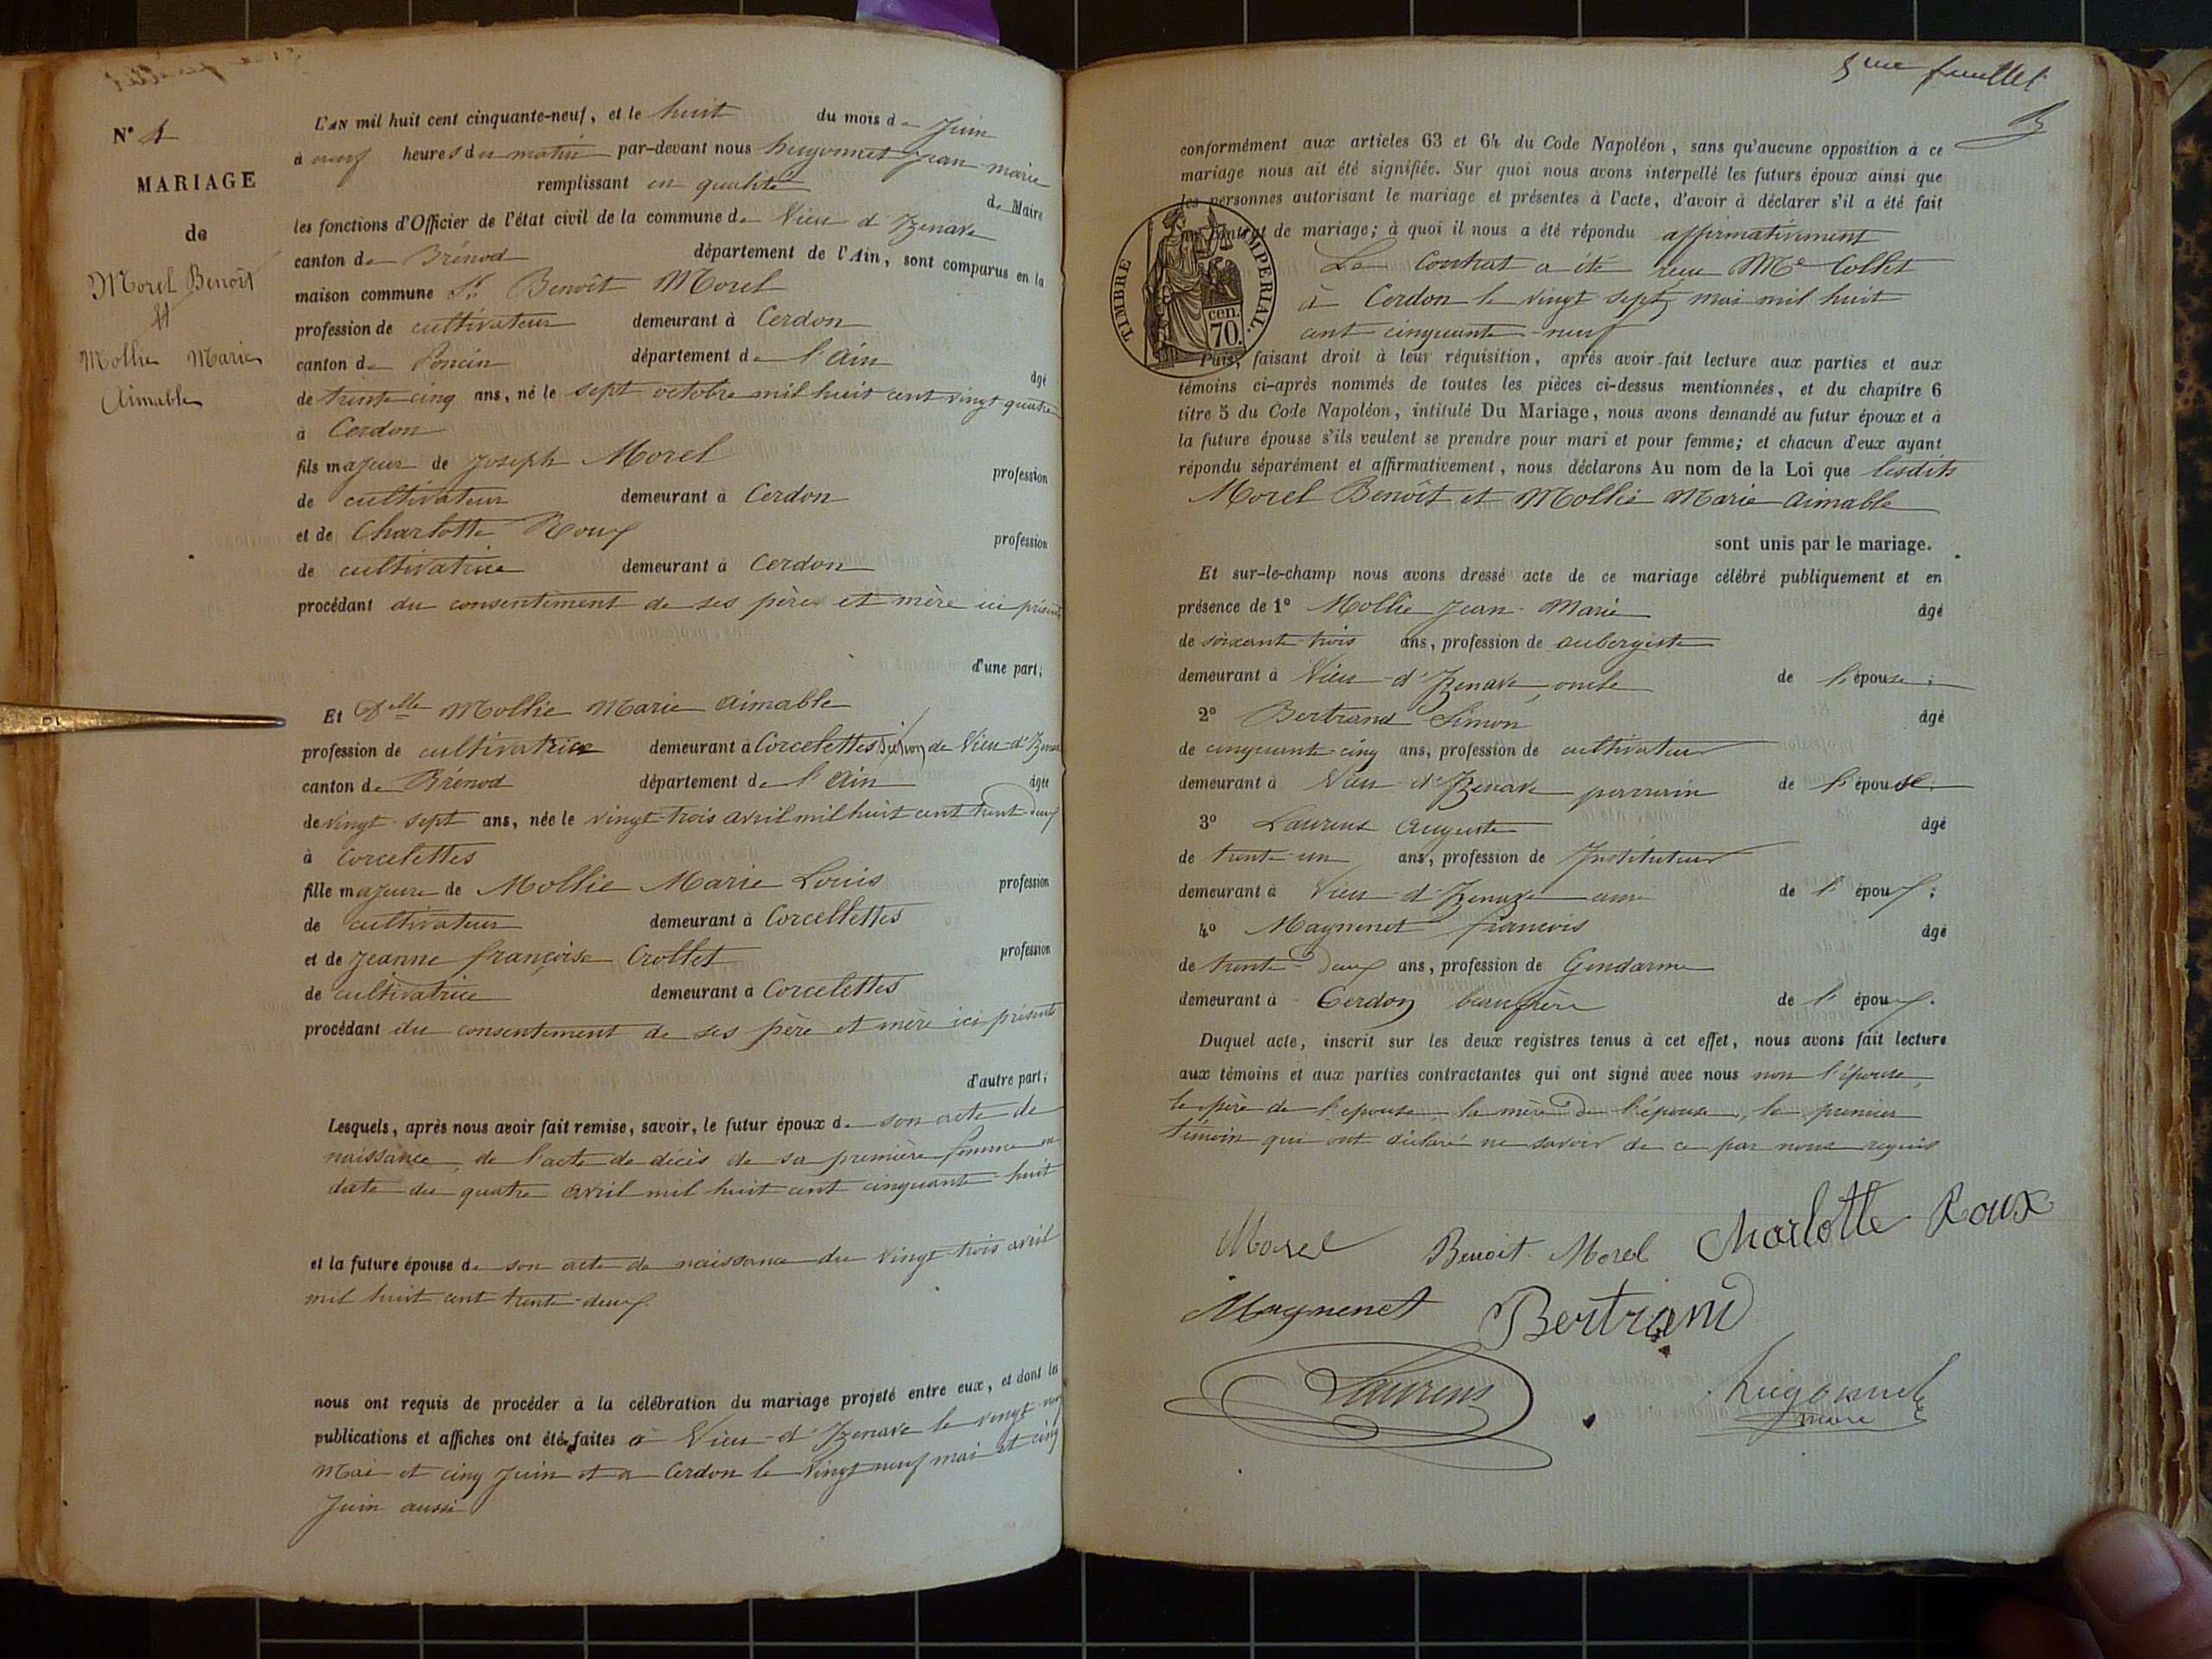 N° 4
MARIAGE
de
Morel Benoît
et
Mollie Marie
Aimable
L'AN mil huit cent cinquante-neuf, et le huit du mois de Juin
à neuf heures du matin par-devant nous hugonnet Jean-marie
remplissant en qualité de Maire
les fonctions d'Officier de l'état civil de la commune de Vieu d'Izenave
canton de Brénod département de l'Ain, sont comparus en la
maison commune Sr. Benoît Morel
profession de cultivateur demeurant à Cerdon
canton de Poncin département de l'Ain âgé
de trente cinq ans, né le sept octobre mil huit cent vingt quatre
à Cerdon
fils majeur de Joseph Morel profession
de cultivateur demeurant à Cerdon
et de Charlotte Roux profession
de cultivatrice demeurant à Cerdon
procédant du consentement de ses père et mère ici présents
d'une part;
Et Delle Mollie Marie Aimable
profession de cultivatrice demeurant à Corcelettes section de Vieu-d'Izenave
canton de Brénod département de l'Ain âgée
de vingt-sept ans, née le vingt-trois avril mil huit cent trent-deux
à Corcelettes
fille majeure de Mollie Marie Louis profession
de cultivateur demeurant à Corcellettes
et de Jeanne françoise Crollet profession
de cultivatrice demeurant à Corcelettes
procédant du consentement de ses père et mère ici présents
d'autre part;
Lesquels, après nous avoir fait remise, savoir, le futur époux de son acte de
naissance, de l'acte de décès de sa première femme en
date du quatre avril mil huit cent cinquante-huit
et la future épouse de son acte de naissance du vingt-trois avril
mil huit cent trente-deux
nous ont requis de procéder à la célébration du mariage projeté entre eux, et dont les
publications et affiches ont été faites à Vieu-d'Izenave le vingt neuf
Mai et cinq Juin et à Cerdon le vingt neuf mai et cinq
Juin aussi
5me feuillet
conformément aux articles 63 et 64 du Code Napoléon, sans qu'aucune opposition à ce
mariage nous ait été signifiée. Sur quoi nous avons interpellé les futurs époux ainsi que
les personnes autorisant le mariage et présentes à l'acte, d'avoir à déclarer s'il a été fait
contrat de mariage; à quoi il nous a été répondu affirmativement
TIMBRE IMPERIAL.
cen.
70.
Le Contrat a été reçu Me Collet
à Cerdon le vingt sept mai mil huit
cent cinquante-neuf
Puis, faisant droit à leur réquisition, après avoir fait lecture aux parties et aux
témoins ci-après nommés de toutes les pièces ci-dessus mentionnées, et du chapitre 6
titre 5 du Code Napoléon, intitulé Du Mariage, nous avons demandé au futur époux et à
la future épouse s'ils veulent se prendre pour mari et pour femme; et chacun d'eux ayant
répondu séparément et affirmativement, nous déclarons Au nom de la Loi que lesdits
Morel Benoît et Mollie Marie Aimable
sont unis par le mariage.
Et sur-le-champ nous avons dressé acte de ce mariage célébré publiquement et en
présence de 1° Mollie Jean-Marie âgé
de soixante-trois ans, profession de aubergiste
demeurant à Vieu-d'Izenave, oncle de l'épouse;
2° Bertrand Simon âgé
de cinquante-cinq ans, profession de cultivateur
demeurant à Vieu-d'Izenave parrain de l'épouse;
3° Laurens Auguste âgé
de trente-un ans, profession de Instituteur
demeurant à Vieu-d'Izenave ami de l'époux;
4° Magnenet françois âgé
de trente-deux ans, profession de Gendarme
demeurant à Cerdon beaufrère de l'époux.
Duquel acte, inscrit sur les deux registres tenus à cet effet, nous avons fait lecture
aux témoins et aux parties contractantes qui ont signé avec nous non l'épouse,
le père de l'epouse, la mère de l'épouse, le premier
témoin qui ont déclaré ne savoir de ce par nous requis
Morel Benoit Morel Charlotte Roux
Magnenet Bertrand
Laurens Hugonnet
maire